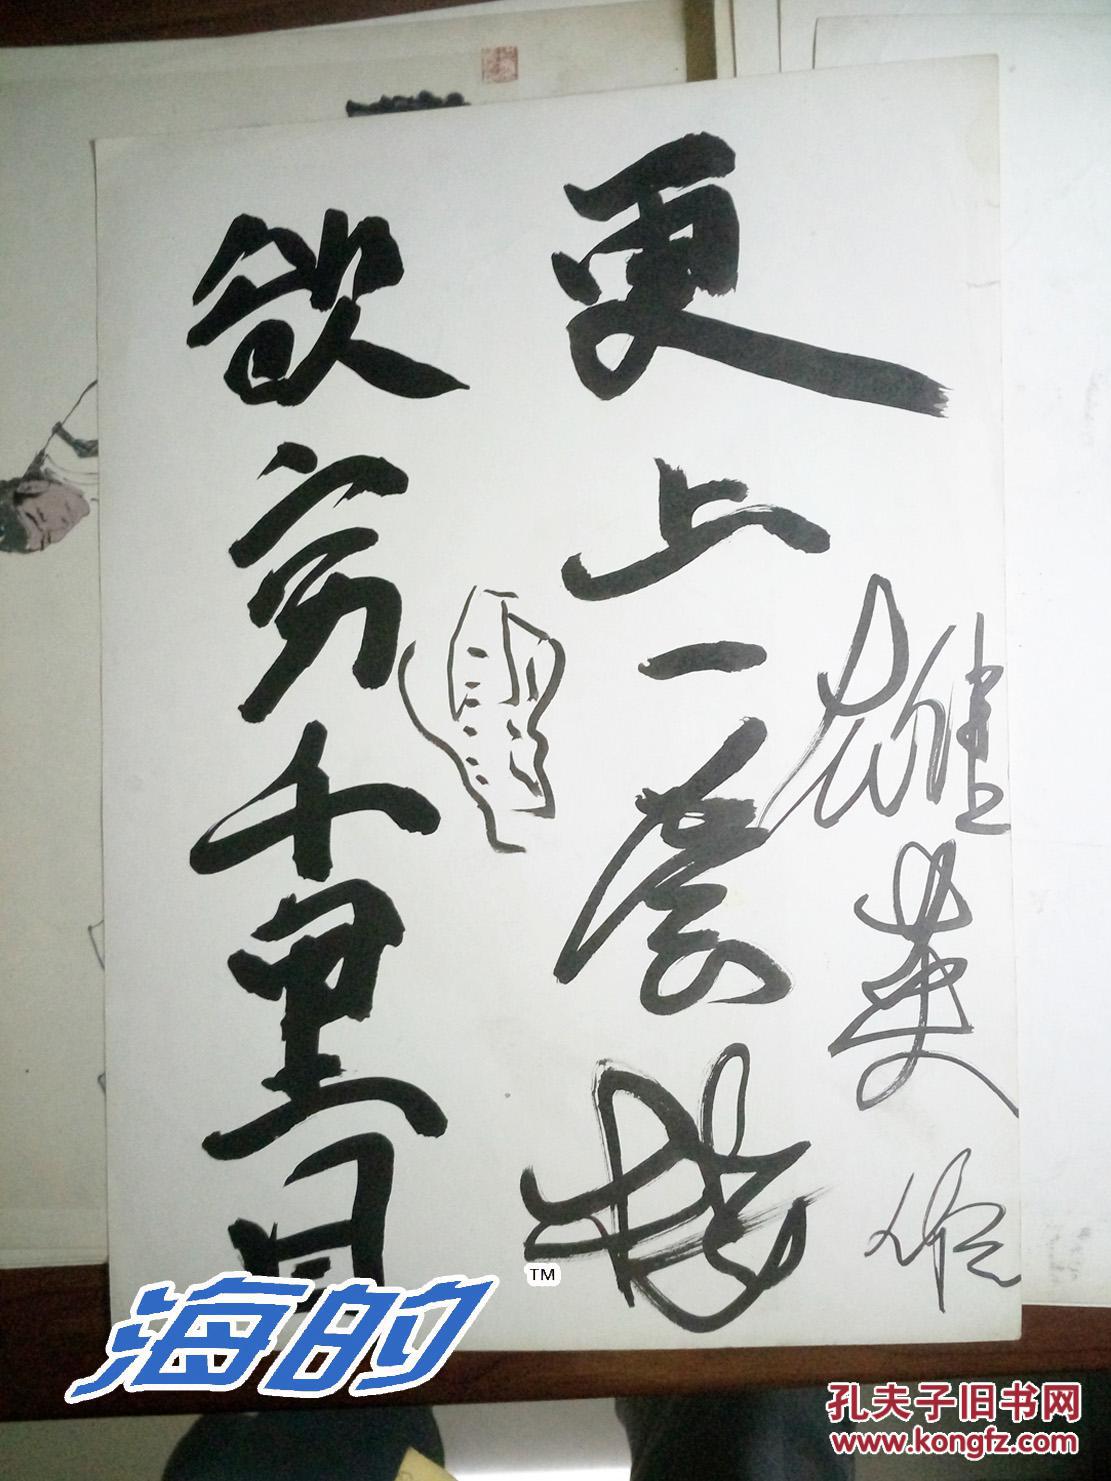 欲穷千里目
更上一层楼
海的 TM
孔夫子旧书网
www.kongfz.com